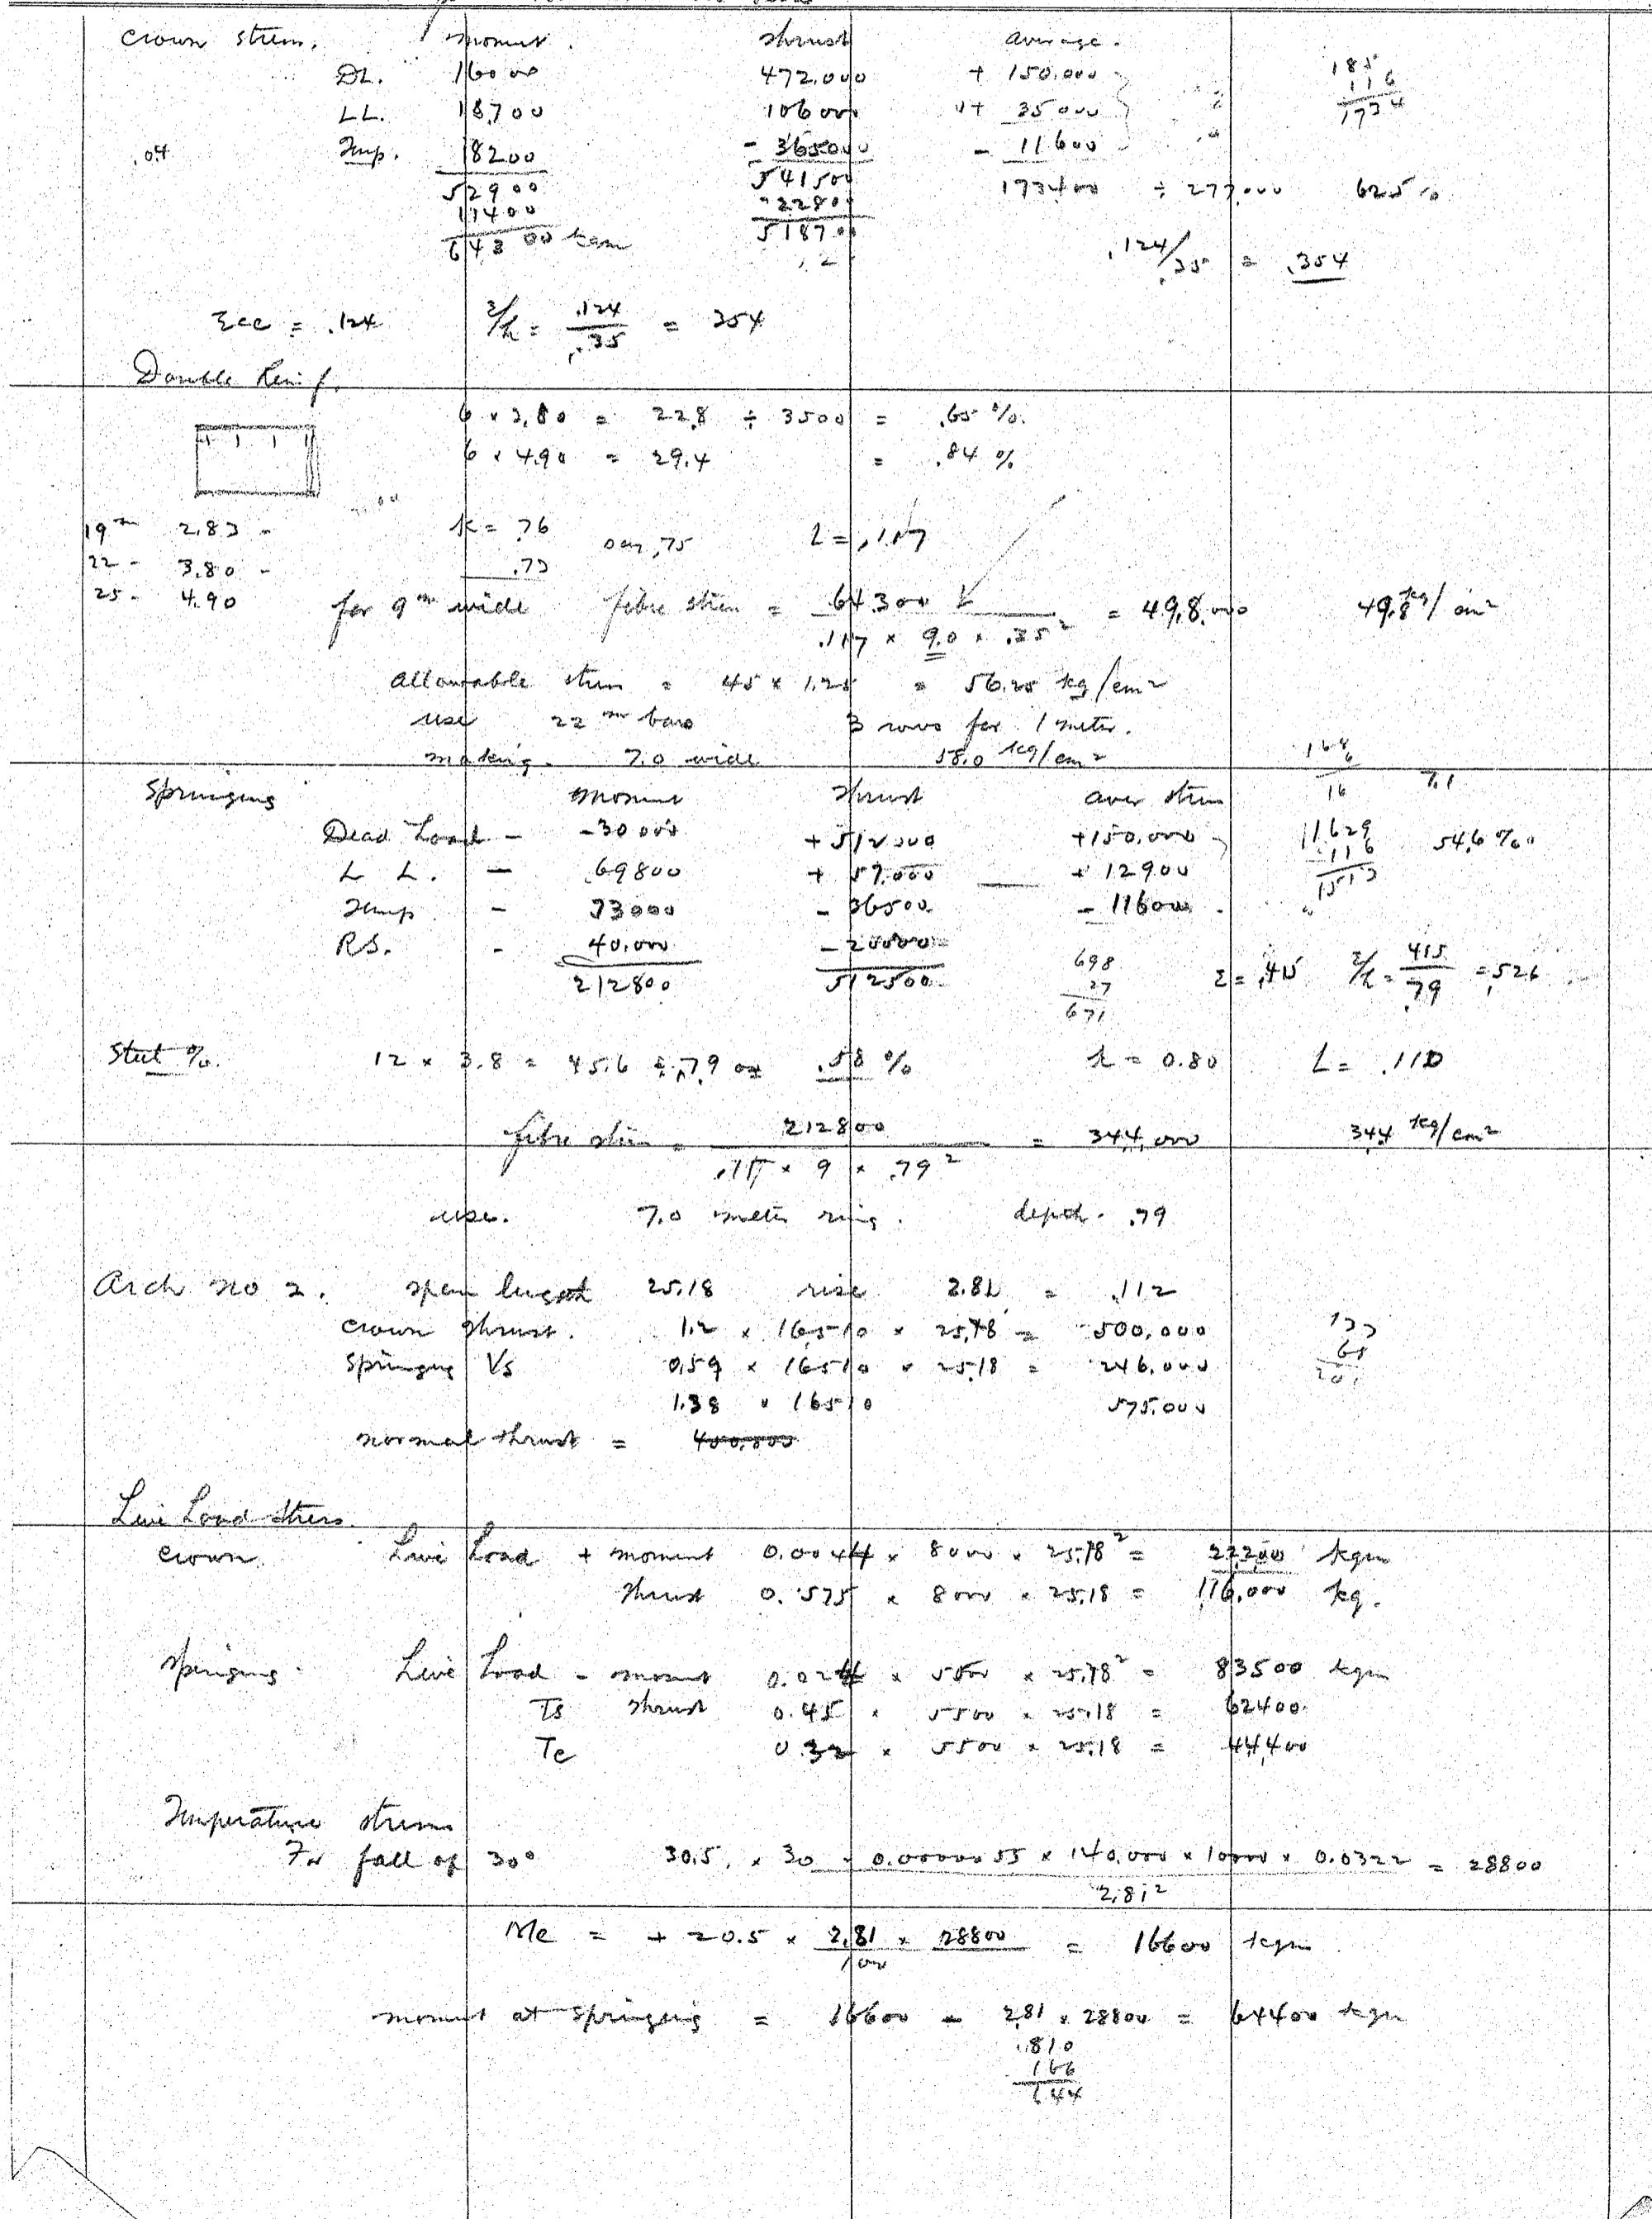 Crown stress. Moment. Thrust Average.
DL. 16000 472,000 + 150,000 185
LL. 18,700 106000 + 35000 116
.04 Temp. 18200 - 36500 - 11600 1734
52900 541500 173400 ÷ 277,000 625%
11400 22800
64300 kgm 518700 .124/.35 = .354
Ecc = .124 e/h = .124/.35 = 354
Double Reinf.
6 × 3.80 = 22.8 ÷ 3500 = .65 %.
6 × 4.90 = 29.4 = .84 %
19 mm 2.83 - k = .76 say .75 L = .117
22 - 3.80 - .73
25 - 4.90 for 9 m wide fibre stress = 64300 / .117 × 9.0 × .35² = 498,000 49.8 kg/cm²
Allowable stress = 45 × 1.25 = 56.25 kg/cm²
use 22 mm bars 3 rows for 1 meter.
making 7.0 wide 58.0 kg/cm²
Springing Moment Thrust Aver stress 16 7.1
Dead Load - -30000 + 512000 +150,000 1629 54.6 %
L L. - 69800 + 57,000 + 12900 116
Temp. - 73000 - 36500 - 11600 1513
RS. - 40,000 - 20000
212800 512500 698 27 671 e = .415 e/h = 415/.79 = .526
Steel %. 12 × 3.8 = 45.6 ÷ .79 or .58 % k = 0.80 L = .110
fibre stress = 212800 / .11 × 9 × .79² = 344,000 34.4 kg/cm²
use. 7.0 meter ring. depth .79
Arch no 2. span length 25.18 rise 2.81 = .112
Crown thrust. 1.2 × 16510 × 25.18 = 500,000
Springing Vs 0.59 × 16510 × 25.18 = 246,000
1.38 × 16510 575,000
normal thrust = 400,800
Live Load Stress
Crown. Live Load + moment 0.0044 × 8000 × 25.18² = 22200 kgm
Thrust 0.575 × 8000 × 25.18 = 116,000 kg.
Springing. Live Load - moment 0.024 × 5500 × 25.18² = 83500 kgm
Ts thrust 0.45 × 5500 × 25.18 = 62400
Tc 0.32 × 5500 × 25.18 = 44,400
Temperature stress
For fall of 30° 30.5 × 30 × 0.0000055 × 140,000 × 10000 × 0.0322 / 2.81² = 28800
Mc = + 20.5 × 2.81 × 28800 / 100 = 16600 kgm
moment at springing = 16600 - 2.81 × 28800 = 64400 kgm
810
166
644